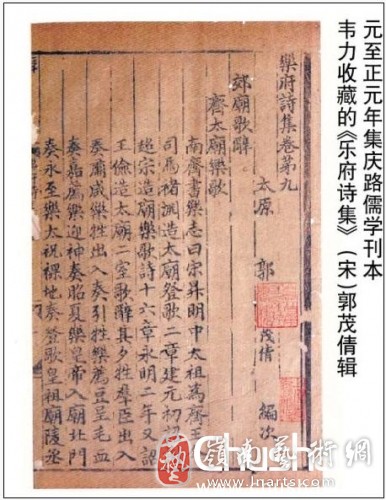 元至正元年集庆路儒学刊本
韦力收藏的《乐府诗集》(宋)郭茂倩辑
樂府詩集卷第九
太原 郭 茂倩 編次
郊廟歌辭
齊太廟樂歌
南齊書樂志曰宋昇明中太祖為齊王
司馬褚淵造太廟登歌二章建元初詔
超宗造廟樂歌詩十六章永明二年又詔
王儉造太廟二室歌辭其夕牲羣臣出入
奏肅咸樂牲出入奏引牲樂薦豆呈毛血
奏嘉薦樂迎神奏昭夏樂皇帝入廟北門
奏永至樂太祝祼地奏登歌皇祖廟陵丞
嶺南藝術網
Cnarts.com